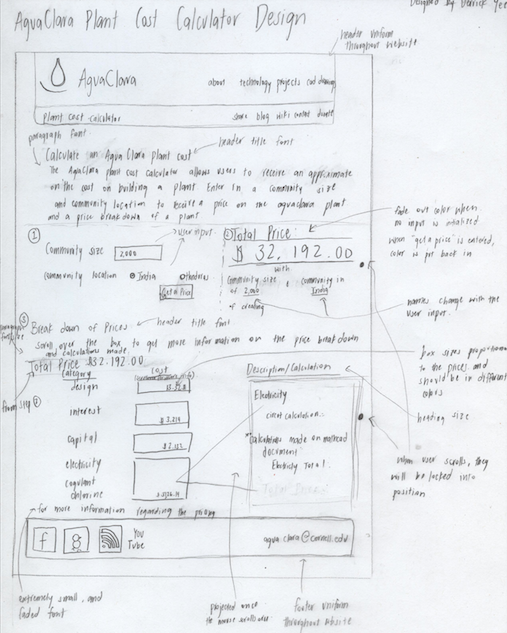 AguaClara Plant Cost Calculator Design
Designed by Derrick Yee
header uniform
throughout website
AguaClara
about technology projects
plant cost calculator
blog wiki contact donate
paragraph font
header title font
Calculate an Agua Clara plant cost
The AguaClara plant cost calculator allows users to receive an approximate
on the cost on building a plant Enter in a community size
and community location to receive a price on the aguaclara plant
and a price breakdown of a plant
user input
1
Community size 2000
community location India Honduras
Get a Price
2 Total Price:
$ 32,192.00
with
community size of 2,000 & community in India
of creating
fade out color when
no input is initialized
when "get a price is entered,
color is put back in
names change with the
user input.
3
Break down of Prices
header title font
Scroll over the box to get more information on the price breakdown
and calculations made
Total Price $32,192.00
from step 2
Category
Cost
design
interest
capital
electricity
coagulant
chlorine
Description/Calculation
Electricity
calculation
*Calculations made on mathcad
document*
Electricity Total:
box sizes proportional
to the prices and
should be in different
colors
heading size
when user scrolls, they
will be locked into
position
for more information regarding the pricing
f
g
You
Tube
aguaclara@cornell.edu
extremely small, and
faded font
projected once
the mouse scrolls over
footer uniform
throughout website